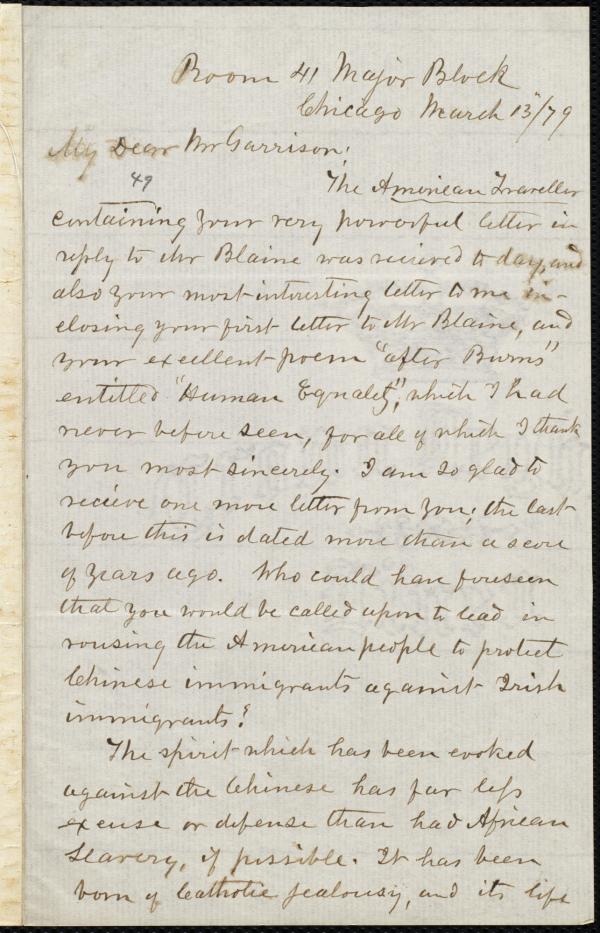 Room 41 Major Block
Chicago March 13"/79
My Dear Mr Garrison;
49
The American Traveller
containing your very powerful letter in
reply to Mr Blaine was recieved to day, and
also your most interesting letter to me in-
closing your first letter to Mr Blaine, and
your excellent poem "after Burns"
entitled "Human Equality", which I had
never before seen, for all of which I thank
you most sincerely. I am so glad to
recieve one more letter from you; the last
before this is dated more than a score
of years ago. Who could have foreseen
that you would be called upon to lead in
rousing the American people to protect
Chinese immigrants against Irish
immigrants?
The spirit which has been evoked
against the Chinese has far less
excuse or defense than had African
Slavery, if possible. It has been
born of Catholic jealousy, and its life